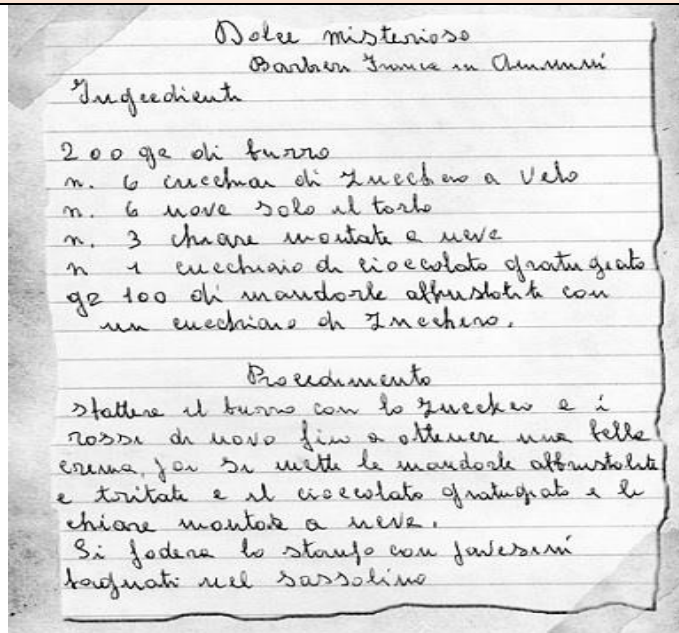 Dolce misterioso
Barbieri Franca in
Ingredienti
200 gr di burro
n. 6 cucchiai di zucchero a velo
n. 6 uova solo il torlo
n. 3 chiare montate a neve
n 1 cucchiaio di cioccolato gratugiato
gr 100 di mandorle abbrustolite con
un cucchiaio di zucchero.
Procedimento
sbattere il burro con lo zucchero e i
rossi di uovo fino a ottenere una bella
crema, poi si mette le mandorle abbrustolite
e tritate e il cioccolato gratugiato e le
chiare montate a neve.
Si fodera lo stampo con pavesini
bagnati nel sassolino